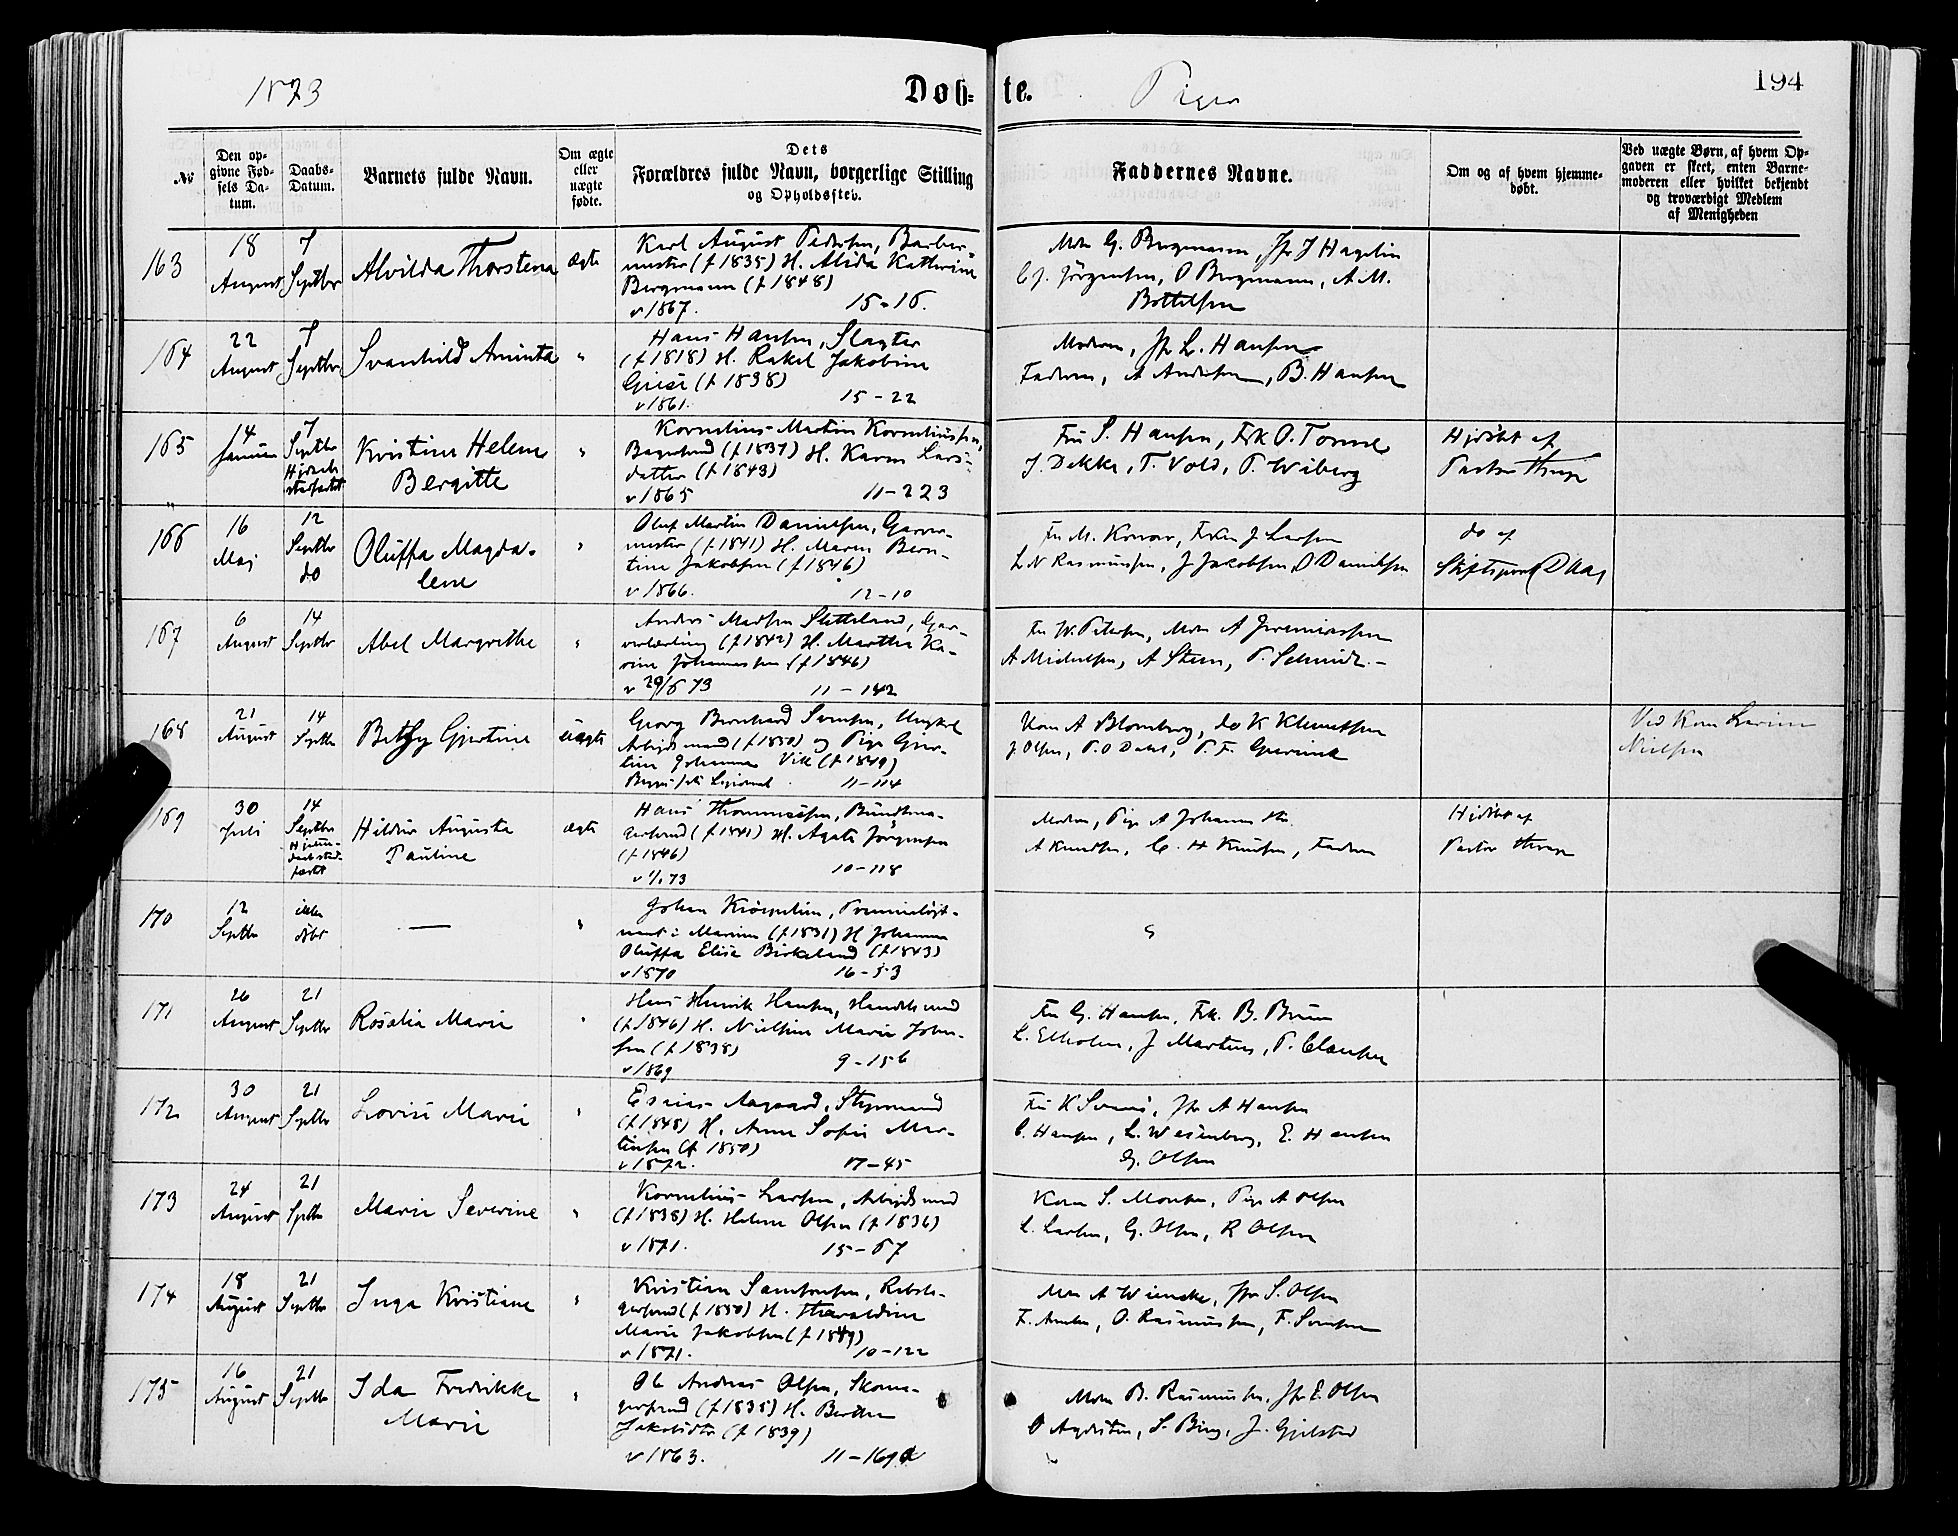 1873
Döb-te.
Piger
194
№
Den op-
givne Fød-
sels Da-
tum.
Daabs-
Datum.
Barnets fulde Navn.
Om ægte
eller
uægte
fødte.
Dets
Forældres fulde Navn, borgerlige Stilling
og Opholdssted.
Faddernes Navne.
Om og af hvem hjemme-
døbt.
Ved uægte Børn, af hvem Op-
gaven er skeet, enten Barne-
moderen eller hvilket bekjendt
og troværdigt Medlem
af Menigheden
163
18
August
7
Septbr
Alvilda Thorstena
ægte
Karl August Pedersen, Barber-
mester (f 1835) H. Alida Kathrine
Bergmann (f 1848)
v 1867. 15-16.
Mdm G. Bergmann, Jfr J Hagelin
C J. Jörgensen, O Bergmann, A. M.
Bottelsen
164
22
August
7
Septbr
Svanhild Aminta
"
Hans Hansen, Slagter
(f 1818) H. Rakel Jakobine
(f 1838)
v 1861. 15-22
Moderen, Jfr L. Hansen
Faderen, A Andersen, B. Hansen
165
14
Januar
7
Septbr
Kristine Helene
Bergitte
"
Kornelius Martin Korneliussen,
(f 1837) H. Karen Lars-
datter (f 1843)
v 1865 11-223
Fru S. Hansen, Frk O. Tonne
J. Dekke, T. Vold, P. Wiberg
Hjdöbt af
Pastor
166
16
Maj
12
Septbr
do
Oluffa Magda-
lene
"
Oluf Martin Danielsen, Garver-
mester (f 1841) H. Maren Bern-
tine Jakobsen (f 1846)
v 1866. 12-10
Fru M. , J Larsen
L N Rasmussen, J Jakobsen, D Danielsen
do af
Daae
167
6
August
14
Septbr
Abel Margrethe
"
Anders Madsen Sletteland, Gar-
verlærling (f 1842) H. Marthe Ka-
rine Johannessen (f 1846)
v 29/6 73 11-142
Fru W. Petersen, Mdm A Jeremiassen
A Michelsen, A Steen, P. Schmidt.-
168
21
August
14
Septbr
Betzy Gjertine
uægte
Georg Bernhard Svensen, Ungkarl
Arbejdsmand (f 1850) og Pige Gjer-
tine Johanna Vik (f 1849)
11-114
Kone A Blomberg, do K Klemetsen
J Olsen, P. O Dahl, P. F.
Ved Kone
Nielsen
169
30
Juli
14
Septbr
Hildur Augusta
Pauline
ægte
Hans Thommessen, Bundtma-
gersvend (f 1841) H. Agate Jørgensen
(f 1846)
10-118
Moderen, Pige A
A Knudsen, C. H Knudsen, Faderen
Hjdöbt af
Pastor
170
12
Septbr
ikke
döbt
—
"
Johan , Premierløjt-
nant i Marinen (f 1831) H Johanne
Oluffa Elise Birkeland (f 1843)
v 1870 16-33
171
26
August
21
Septbr
Rosalia Marie
"
Hans Henrik Hansen, Handelsmand
(f 1846) H. Nielsine Marie John-
sen (f 1838)
v 1869 9-156
Fru G. Hansen, Frk. B. Bruun
L. Elholm, J Martens, P. Clausen
172
30
August
21
Septbr
Lovise Marie
"
Esaias Aagaard, Styrmand
(f 1848) H. Anne Sofie Mar-
tinsen (f 1850)
v 1872. 17-45
Fru K , Jfr A Hansen
C. Hansen, L. Wesenberg, E. Hansen
G. Olsen
173
24
August
21
Septbr
Marie Severine
"
Kornelius Larsen, Arbejdsmand
(f 1838) H. Helene Olsen (f 1836)
v 1871. 15-67
Kone S. Monsen, Pige A Olsen
L. Larsen, G. Olsen, R Olsen
174
18
August
21
Septbr
Inga Kristiane
"
Kristian , Rebsla-
gersvend (f 1850) H. Tharaldine
Marie Jakobsen (f 1849)
v 1871. 10-122
Mdm A Wiencke, Jfr S. Olsen
F. , O. Rasmussen, F. Svensen
175
16
August
21
Septbr
Ida Fredrikke
Marie
"
Ole Andreas Olsen, Skoma-
gersvend (f 1835) H. Berthe
Jakobsdtr (f 1839)
v 1863. 11-169
Mdm B. Rasmussen, Jfr E. Olsen
O , S. Bing, J. Gjelsted